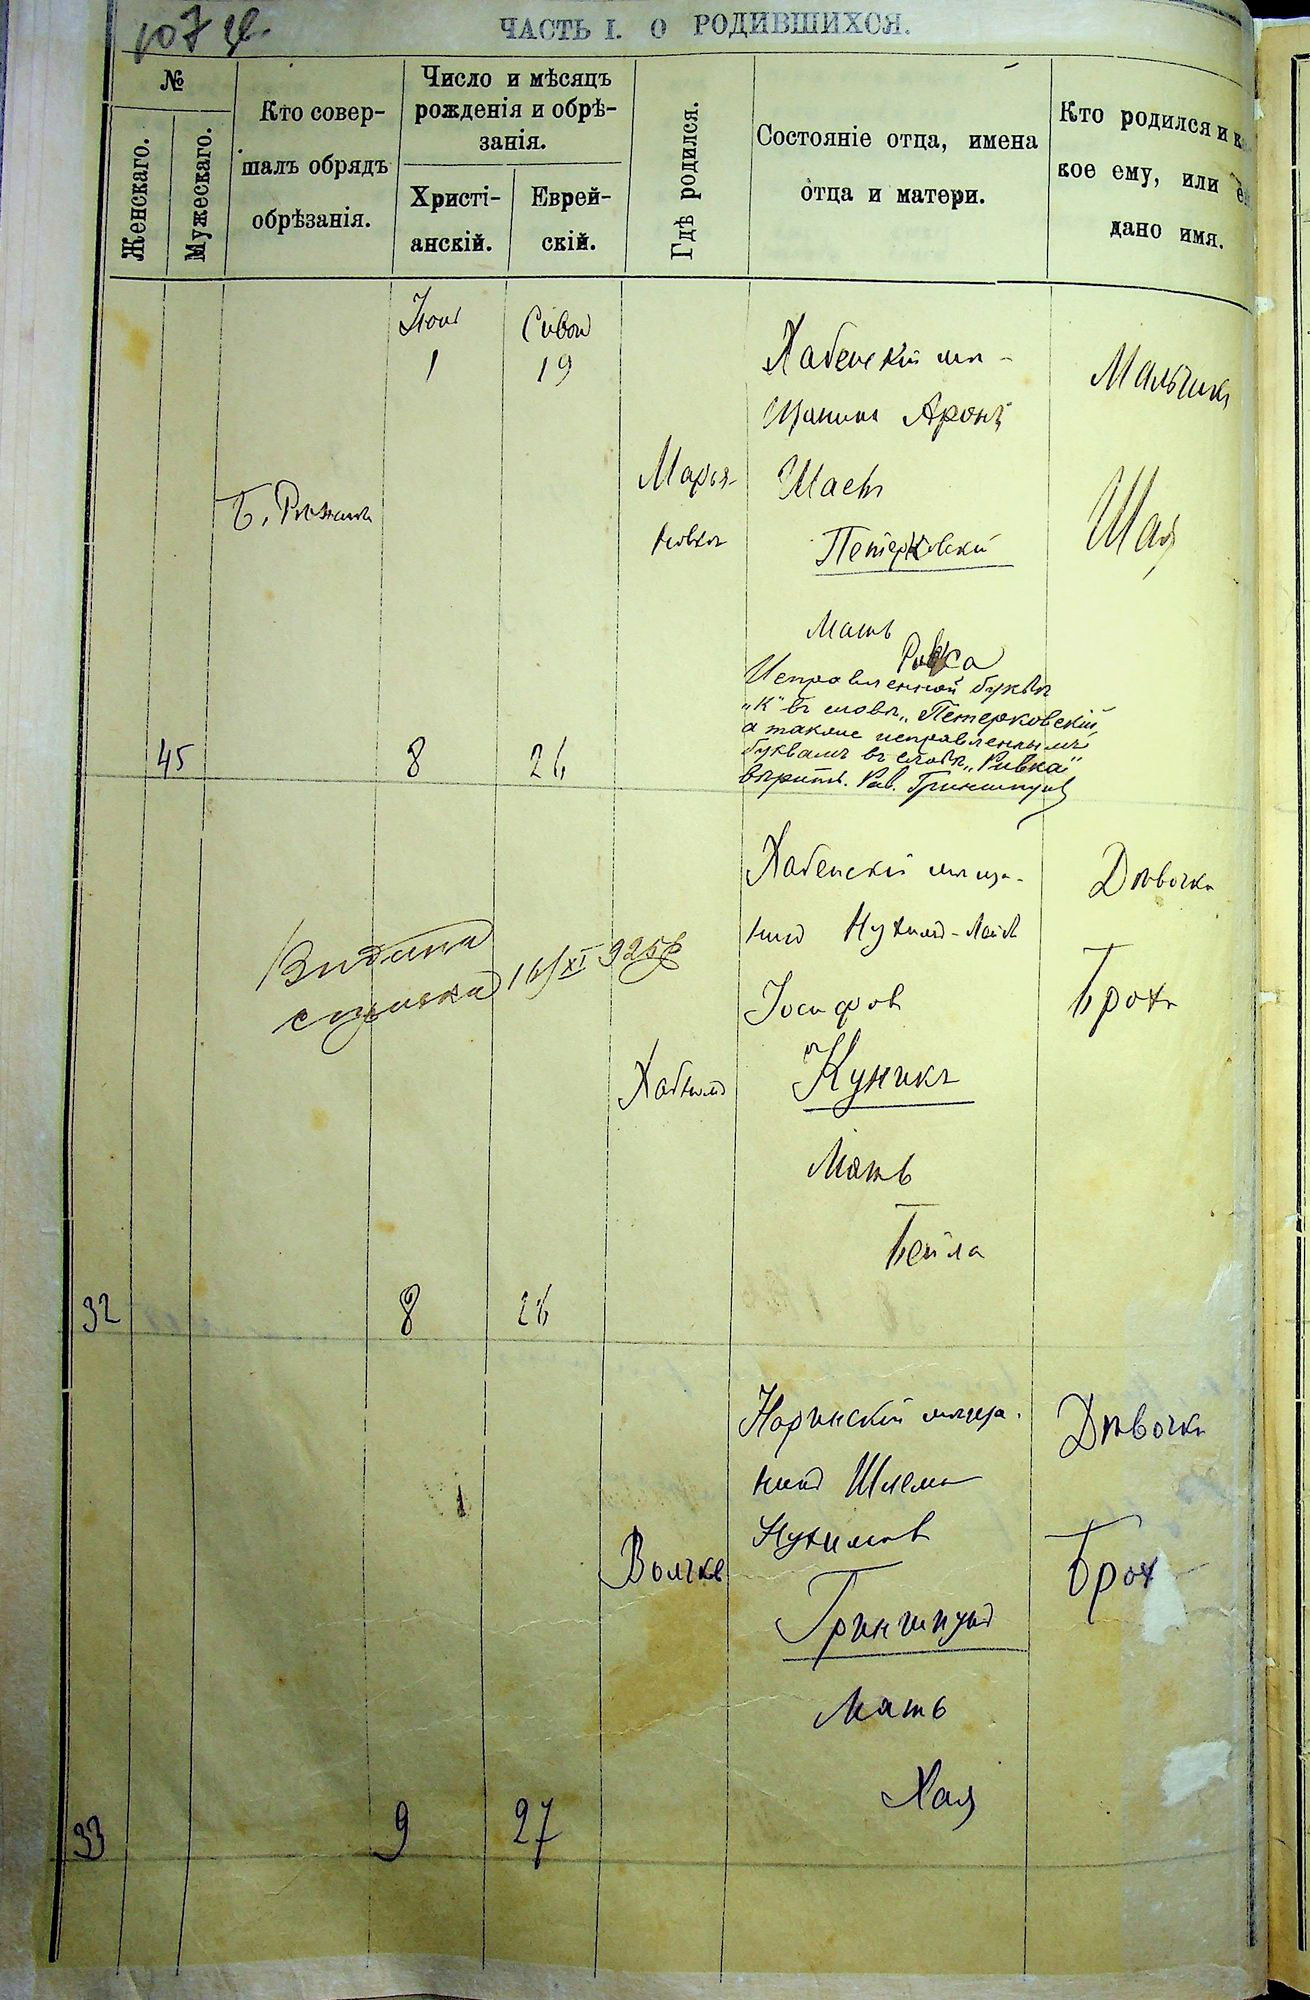 107 
ЧАСТЬ I. О РОДИВШИХСЯ.
№
Женскаго.
Мужескаго.
Кто совер-
шалъ обрядъ
обрѣзанія.
Число и мѣсяцъ
рожденія и обрѣ-
занія.
Христі-
анскій.
Еврей-
скій.
Гдѣ родился.
Состояніе отца, имена
отца и матери.
Кто родился и к
кое ему, или е
дано имя.
45
Б.
1
8
19
26
Марья-
новка
Хабенскій мѣ-
щанинъ Аронъ
Шаевъ
Петерковскій
Мать
Ривка
Исправленной буквѣ
„К" въ словѣ „Петерковскій,
а также исправленнымъ
буквамъ въ словѣ „Ривка"
вѣрить. Рав. Гриншпунъ
Мальчикъ
Шая
32
Видана
16/XI 925
8
26
Хабное
Хабенскій мѣща-
нинъ Нухимъ-Лейб
Іосифов
Куникъ
Мать
Бейла
Дѣвочка
Броха
33
9
27
Волчк
Норинскій мѣща-
нинъ Шлема
Нухимов
Гриншпунъ
Мать
Хая
Дѣвочка
Брох